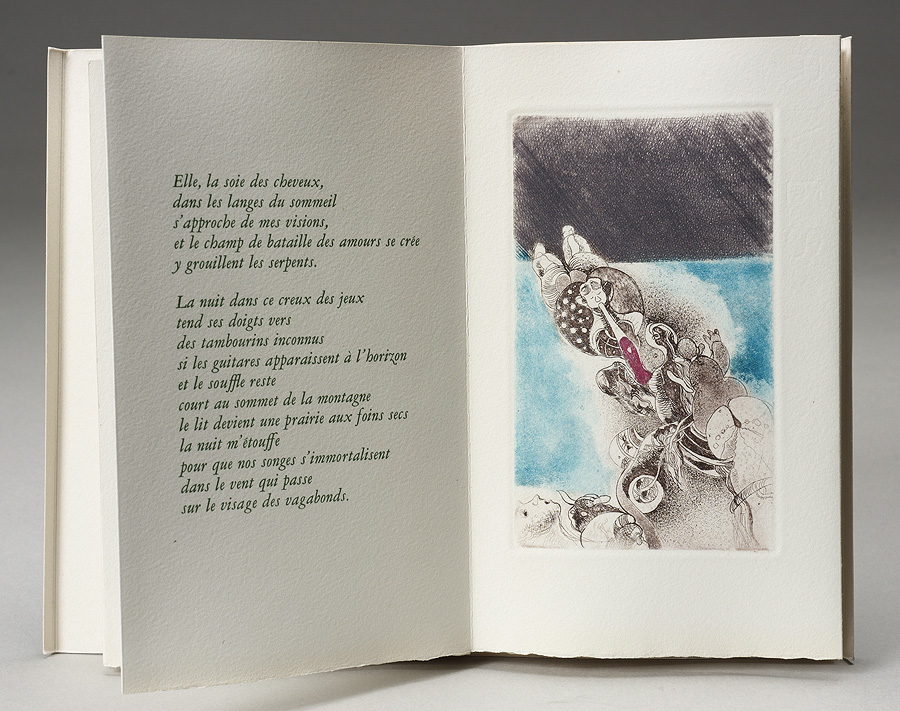 Elle, la soie des cheveux,
dans les langes du sommeil
s'approche de mes visions,
et le champ de bataille des amours se crée
y grouillent les serpents.
La nuit dans ce creux des jeux
tend ses doigts vers
des tambourins inconnus
si les guitares apparaissent à l'horizon
et le souffle reste
court au sommet de la montagne
le lit devient une prairie aux foins secs
la nuit m'étouffe
pour que nos songes s'immortalisent
dans le vent qui passe
sur le visage des vagabonds.